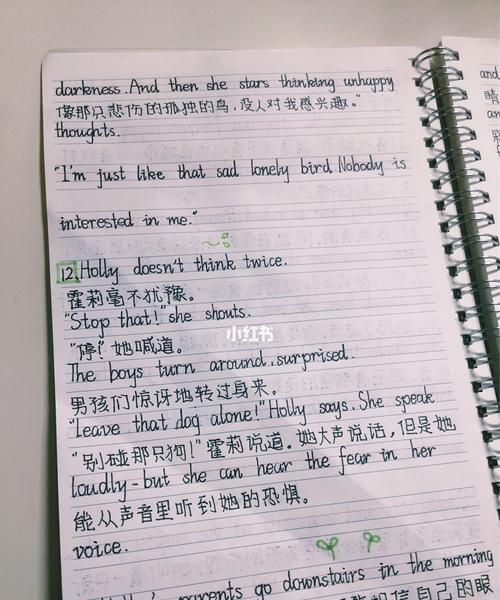 darkness. And then she stars thinking unhappy
像那只悲伤的孤独的鸟,没人对我感兴趣。"
thoughts.
"I'm just like that sad lonely bird. Nobody is
interested in me."
12. Holly doesn't think twice.
霍莉毫不犹豫。
"Stop that!" she shouts.
小红书
"停!"她喊道。
The boys turn around, surprised.
男孩们惊讶地转过身来。
"leave that dog alone!" Holly says. She speak
"别碰那只狗!"霍莉说道。她大声说话,但是她
loudly - but she can hear the fear in her
能从声音里听到她的恐惧。
voice.
parents go downstairs in the morning
相信自己的眼
and
晴
an